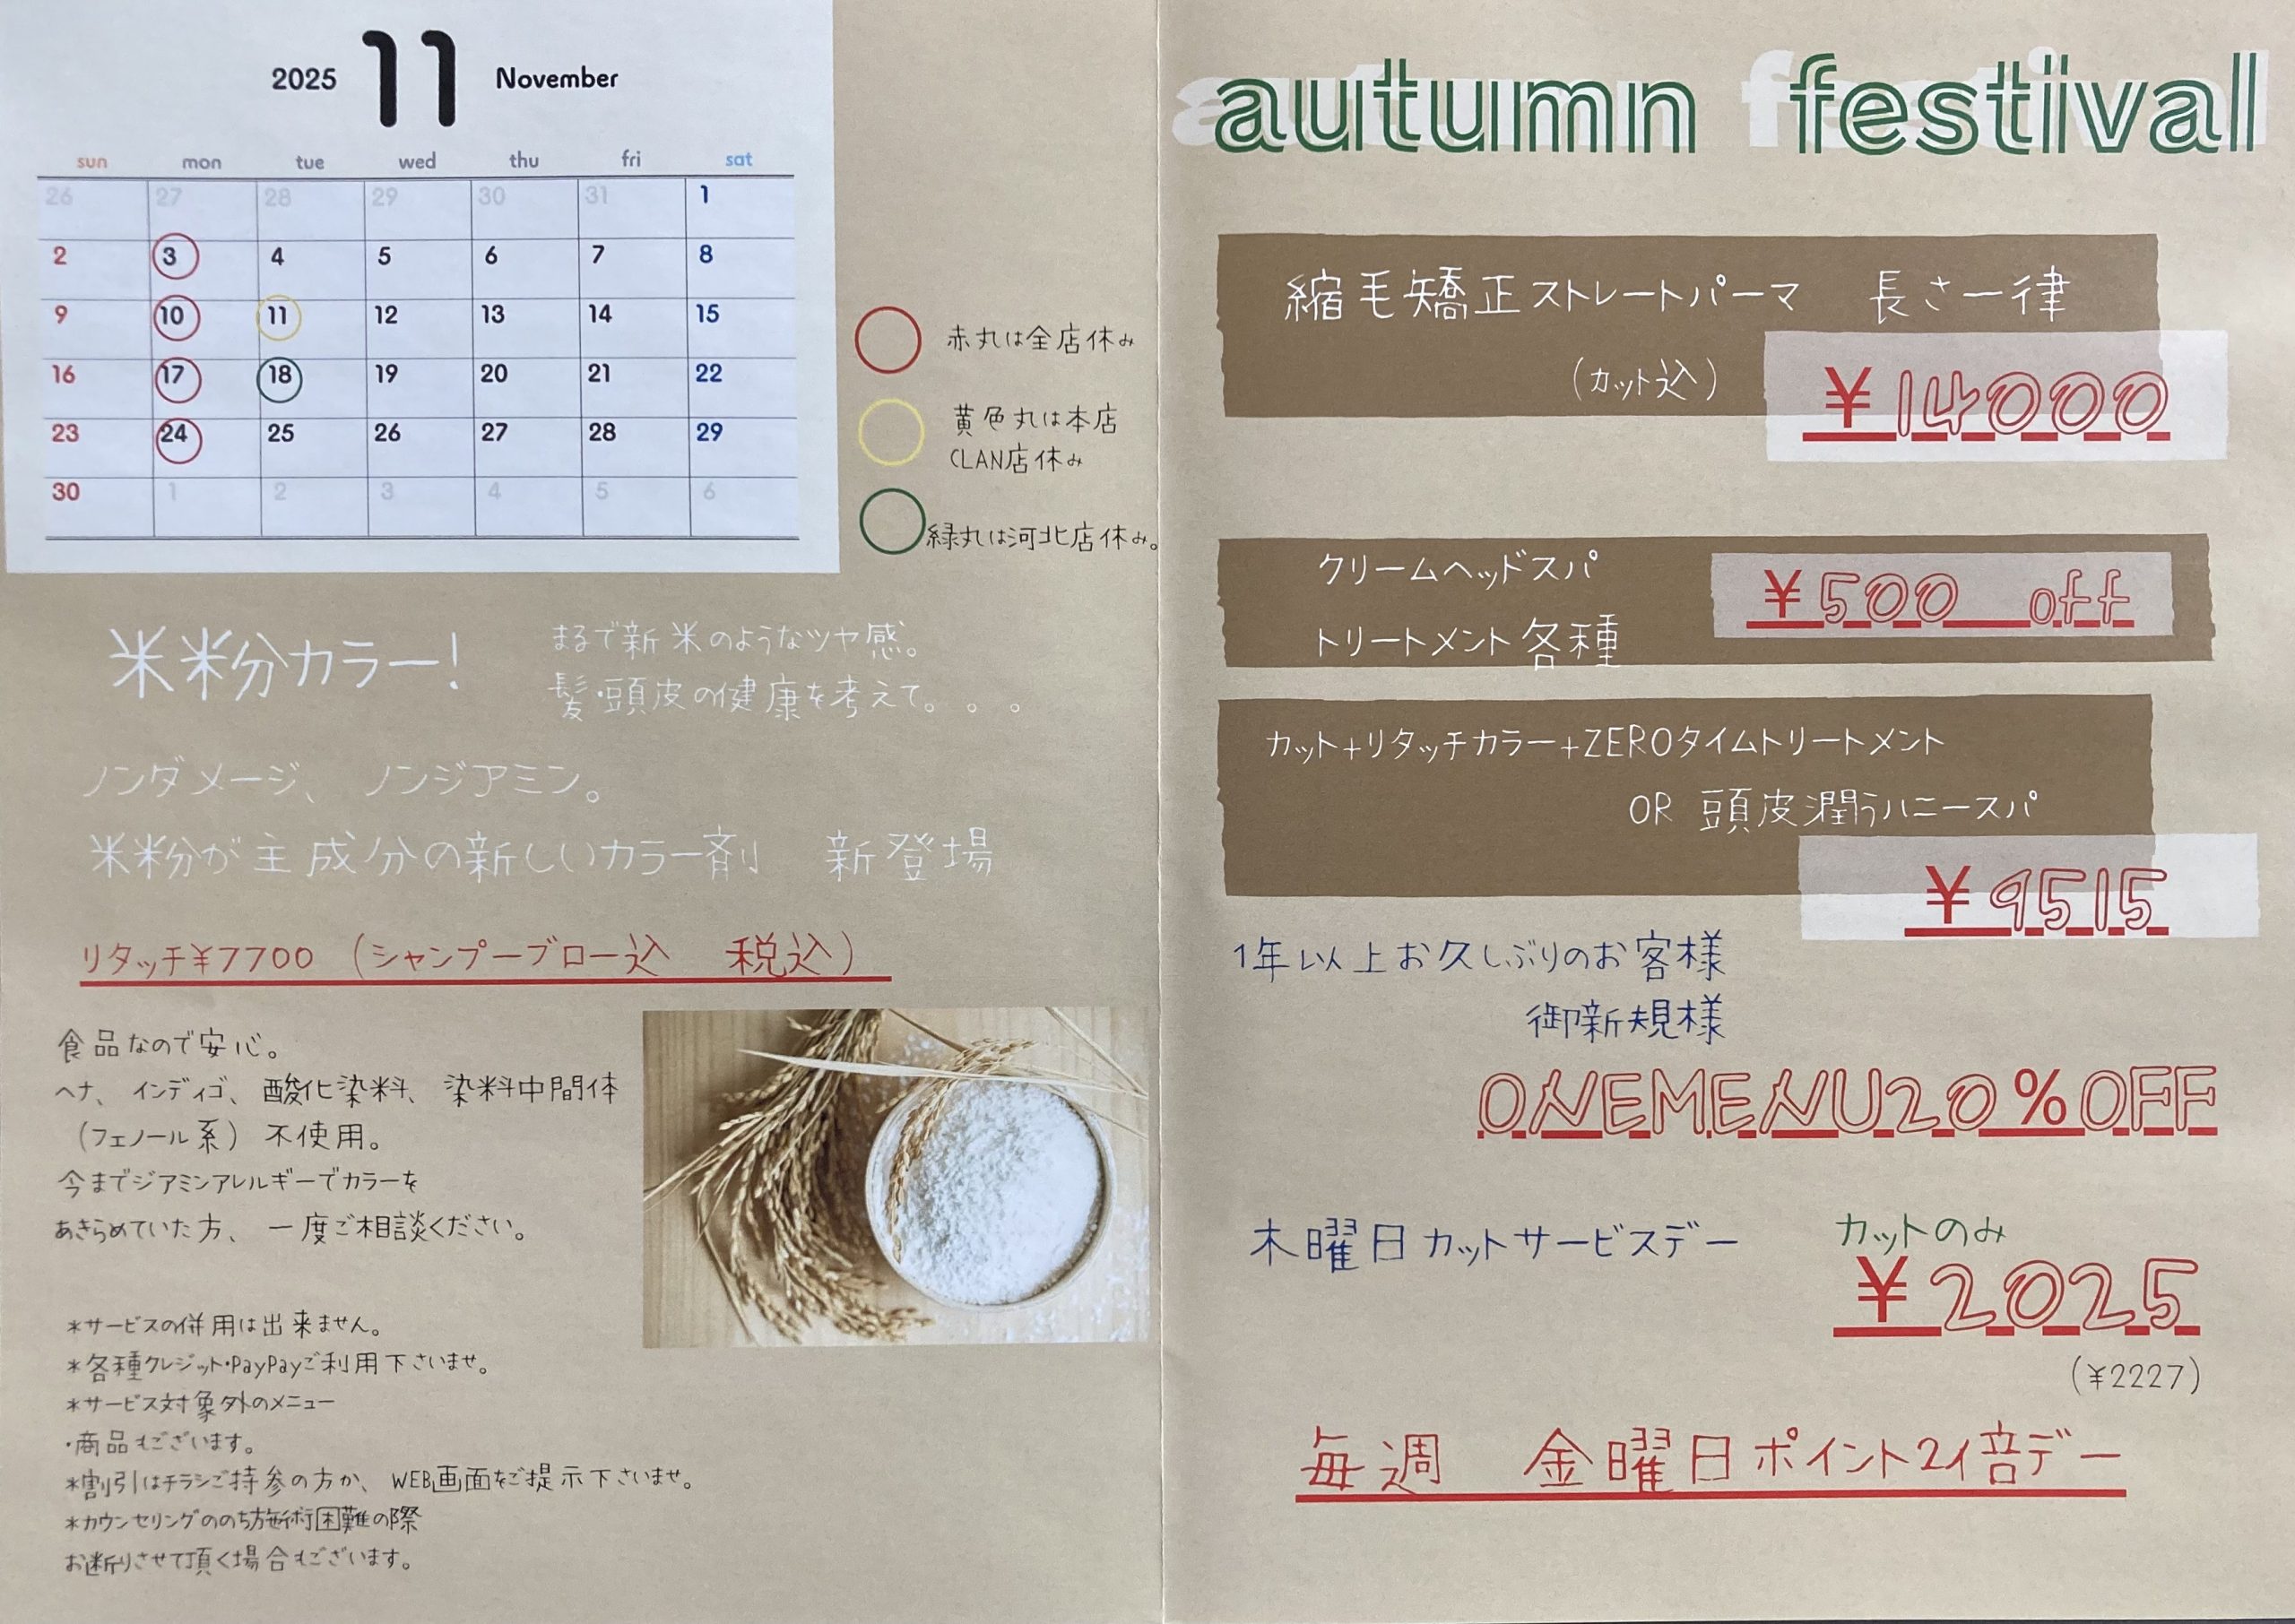 2025 11 November
sun mon tue wed thu fri sat
26 27 28 29 30 31 1
2 3 4 5 6 7 8
9 10 11 12 13 14 15
16 17 18 19 20 21 22
23 24 25 26 27 28 29
30 1 2 3 4 5 6
赤丸は全店休み
黄色丸は本店
CLAN店休み
緑丸は河北店休み。
米米分カラー!
まるで新米のようなツヤ感。
髪・頭皮の健康を考えて。。。
ノンダメージ、ノンジアミン。
米粉が主成分の新しいカラー剤 新登場
リタッチ¥7700 (シャンプーブロー込 税込)
食品なので安心。
ヘナ、インディゴ、酸化染料、染料中間体
(フェノール系)不使用。
今までジアミンアレルギーでカラーを
あきらめていた方、一度ご相談ください。
*サービスの併用は出来ません。
*各種クレジット・PayPayご利用下さいませ。
*サービス対象外のメニュー
・商品もございます。
*割引はチラシご持参の方か、WEB画面をご提示下さいませ。
*カウンセリングののち施術困難の際
お断りさせて頂く場合もございます。
autumn festival
縮毛矯正ストレートパーマ 長さ一律
(カット込)
¥14000
クリームヘッドスパ
トリートメント各種
¥500 off
カット+リタッチカラー+ZEROタイムトリートメント
OR 頭皮潤うハニースパ
¥9515
1年以上お久しぶりのお客様
御新規様
ONEMENU20%OFF
木曜日カットサービスデー
カットのみ
¥2025
(¥2227)
毎週 金曜日ポイント2倍デー